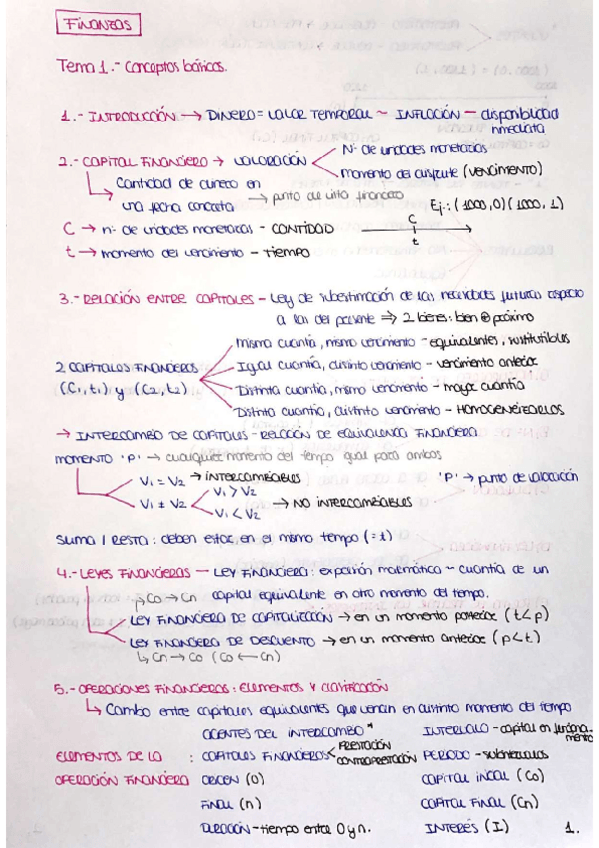 FINANZAS
Tema 1.- Conceptos básicos.
1.- INTRODUCCIÓN → DINERO = VALOR TEMPORAL ~ INFLACIÓN - disponibilidad
inmediata
2.- CAPITAL FINANCIERO → VALORACIÓN
Nº de unidades monetarias
momento del disfrute (VENCIMIENTO)
Cantidad de dinero en
una fecha concreta → punto de vista financiero
Ej.: (1000,0)(1000,1)
C → nº de unidades monetarias - CANTIDAD
t → momento del vencimiento - TIEMPO
C
t
3.- RELACIÓN ENTRE CAPITALES - Ley de subestimación de las necesidades futuras respecto
a las del presente ⇒ 2 bienes: bien ⊕ próximo
2 CAPITALES FINANCIEROS
(C1, t1) y (C2, t2)
misma cuantía, mismo vencimiento - equivalentes, sustituibles
Igual cuantía, distinto vencimiento - vencimiento anterior
Distinta cuantía, mismo vencimiento - mayor cuantía
Distinta cuantía, distinto vencimiento - HOMOGENEIZARLOS
→ INTERCAMBIO DE CAPITALES - RELACIÓN DE EQUIVALENCIA FINANCIERA
MOMENTO 'P' → cualquier momento del tiempo igual para ambos
V1 = V2 → INTERCAMBIABLES
'P' → punto de valoración
V1 ≠ V2
V1 > V2
V1 < V2
→ NO INTERCAMBIABLES
SUMA / RESTA: deben estar en el mismo tiempo (= t)
4.- LEYES FINANCIERAS — LEY FINANCIERA: expresión matemática ~ cuantía de un
capital equivalente en otro momento del tiempo.
Co → Cn
LEY FINANCIERA DE CAPITALIZACIÓN → en un momento posterior (t<p)
LEY FINANCIERA DE DESCUENTO → en un momento anterior (p<t)
Cn → Co (Co ← Cn)
5.- OPERACIONES FINANCIERAS: ELEMENTOS Y CLASIFICACIÓN
Cambio entre capitales equivalentes que vencen en distinto momento del tiempo
ELEMENTOS DE LA
OPERACIÓN FINANCIERA :
AGENTES DEL INTERCAMBIO *
CAPITALES FINANCIEROS < PRESTACIÓN
CONTRAPRESTACIÓN
ORIGEN (0)
FINAL (n)
DURACIÓN - tiempo entre 0 y n.
INTERVALO - capital en funciona-
miento
PERIODO - subintervalos
CAPITAL INICIAL (Co)
CAPITAL FINAL (Cn)
INTERÉS (I)
1.